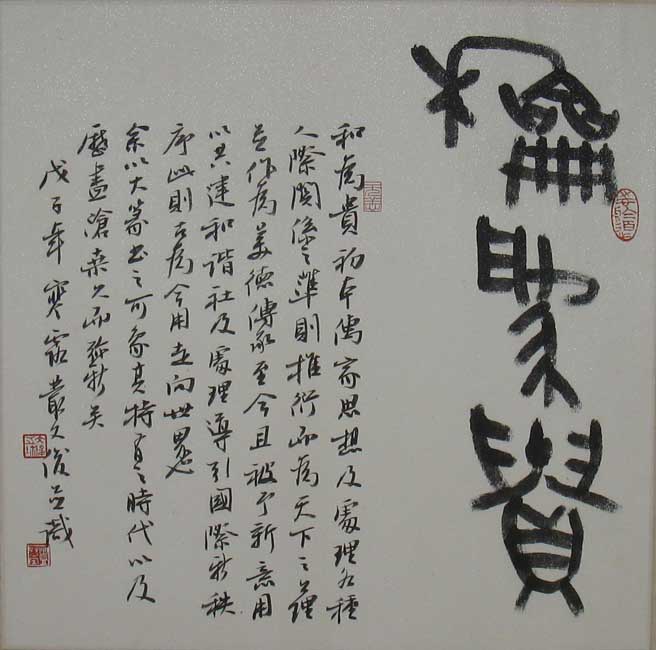 龢為貴
和為貴初本儒家思想及處理各種
人際關係之準則推衍而為天下之理
並作為美德傳承至今且被予新意用
以共建和諧社及處理導引國際新秩
序此則古為今用走向世界也
余以大篆書之可象其特有之時代以及
歷盡滄桑久而彌新矣
戊子年寒露叢文俊並識